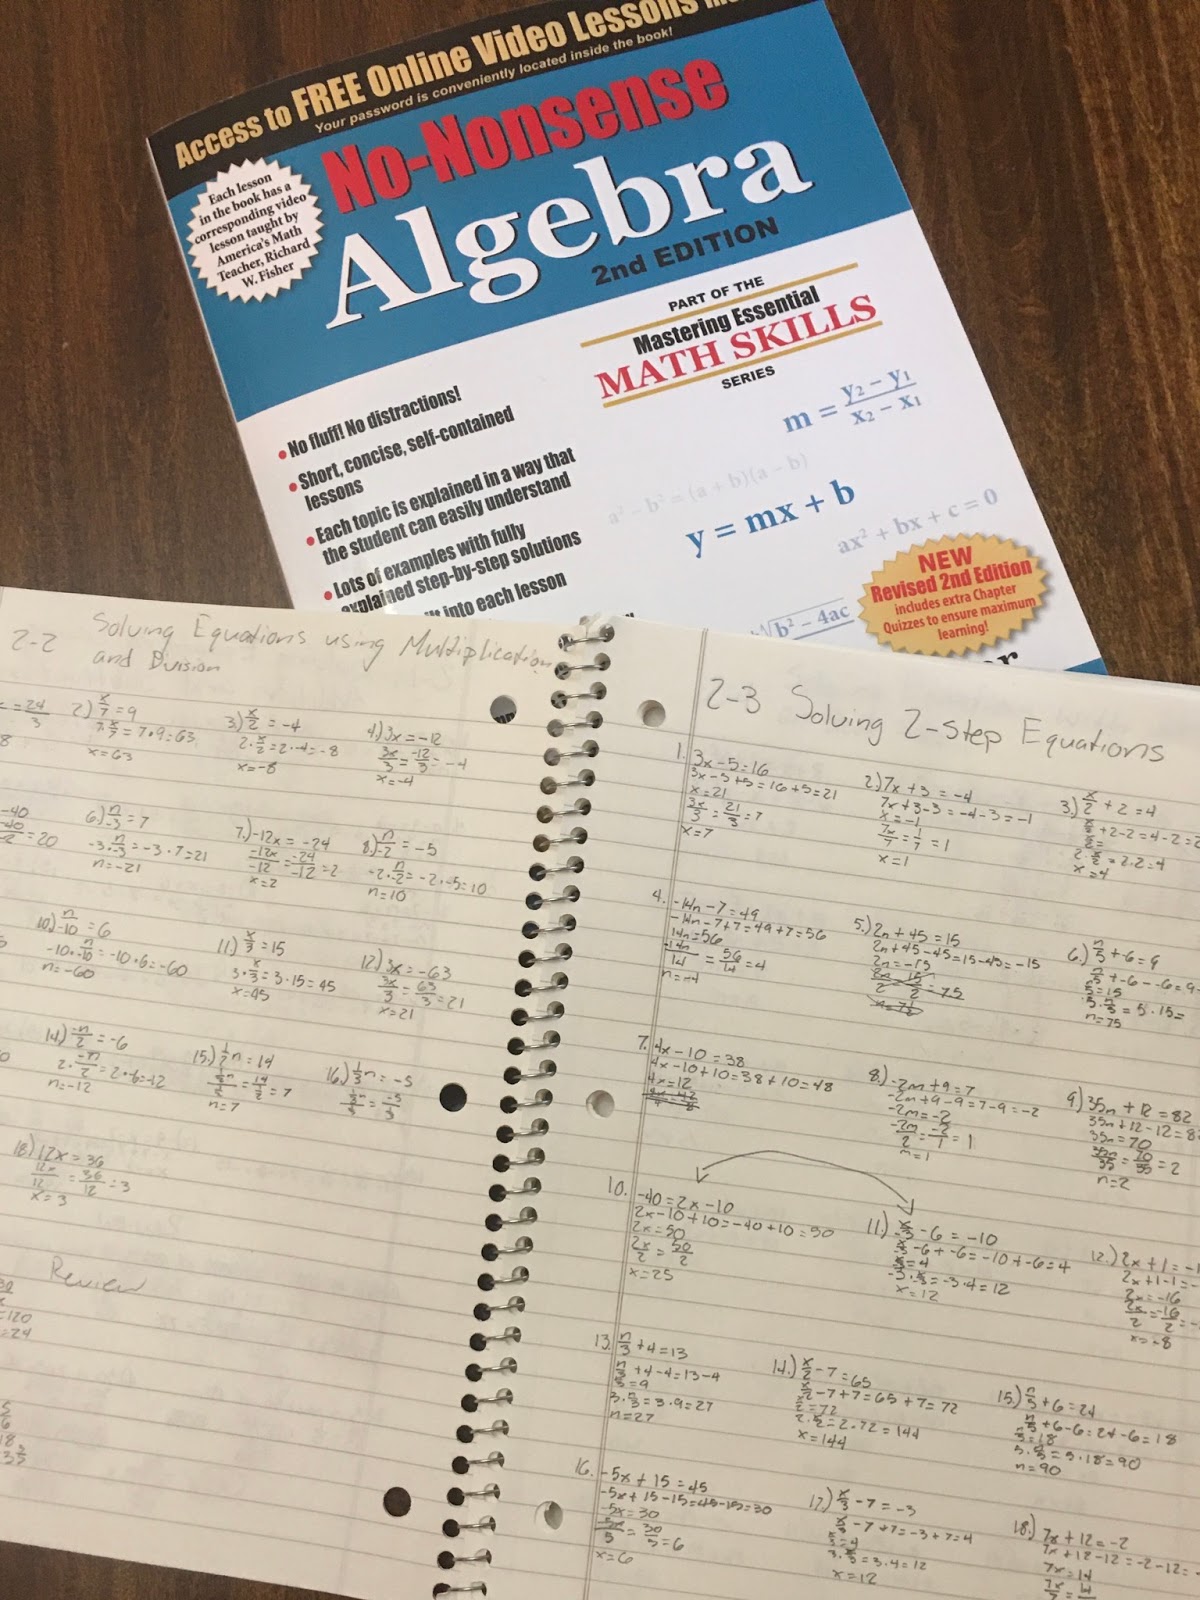 Access to FREE Online Video Lessons
Your password is conveniently located inside the book!
No-Nonsense
Algebra
2nd EDITION
Each lesson
in the book has a
corresponding video
lesson taught by
America's Math
Teacher, Richard
W. Fisher
PART OF THE
Mastering Essential
MATH SKILLS
SERIES
m = y₂ − y₁ / x₂ − x₁
• No fluff! No distractions!
• Short, concise, self-contained
lessons
• Each topic is explained in a way that
the student can easily understand
• Lots of examples with fully
explained step-by-step solutions
into each lesson
a² − b² = (a + b)(a − b)
y = mx + b
ax² + bx + c = 0
b² − 4ac
NEW
Revised 2nd Edition
includes extra Chapter
Quizzes to ensure maximum
learning!
2-2 Solving Equations using Multiplication
and Division
2.) x/7 = 9
7·x/7 = 7·9=63
x=63
3.) x/2 = -4
2·x/2=2·-4=-8
x=-8
4.) 3x=-12
3x/3=-12/3=-4
x=-4
6.) n/-3 = 7
-3·n/-3=-3·7=21
n=-21
7.) -12x = -24
-12x/-12=-24/-12=2
x=2
8.) n/-2=-5
-2·n/-2=-2·-5=10
n=10
10.) n/-10 = 6
-10·n/-10=-10·6=-60
n=-60
11.) x/3=15
3·x/3=3·15=45
x=45
12.) 3x=-63
3x/3=63/3=21
x=21
14.) -n/2=-6
2·-n/2=2·6=12
n=-12
15.) 1/2n=14
n=7
16.) 1/3n=-5
18.) 12x=36
12x/12=36/12=3
x=3
Review
2-3 Solving 2-step Equations
1. 3x-5=16
3x-5+5=16+5=21
x=21
3x/3=21/3=7
x=7
2.) 7x+3=-4
7x+3-3=-4-3=-1
x=-1
7x/7=1/7=1
x=1
3.) x/2+2=4
x/2+2-2=4-2=2
2·x/2=2·2=4
x=4
4. -14n-7=49
-14n-7+7=49+7=56
14n=56
-14n/14=56/14=4
n=-4
5.) 2n+45=15
2n+45-45=15-45=-15
2n=-15
6.) n/5+-6=9
n/5+-6--6=9-
n/5=15
5·n/5=5·15=
n=75
7. 4x-10=38
4x-10+10=38+10=48
4x=12
8.) -2m+9=7
-2m+9-9=7-9=-2
-2m=-2
m=1
9.) 35n+12=82
35n+12-12=8
35n=70
35n/35=70/35=2
n=2
10. -40=2x-10
2x-10+10=-40+10=50
2x=50
2x/2=50/2
x=25
11.) x/-3-6=-10
x/-3-6+-6=-10+-6=4
-3·x/-3=-3·4=12
x=12
12.) 2x+1=-1
2x+1-1=-
2x=-16
2x/2=-16/2=-
x=-8
13. n/3+4=13
n/3+4-4=13-4
n/3=9
3·n/3=3·9=27
n=27
14.) x/2-7=65
x/2-7+7=65+7=72
x/2=72
2·x/2=2·72=144
x=144
15.) n/5+6=24
n/5+6-6=24-6=18
n/5=18
5·n/5=5·18=90
n=90
16. -5x+15=45
-5x+15-15=45-15=30
-5x=30
-5x/5=30/5=6
x=6
17.) x/3-7=-3
x/3-7+7=-3+7=4
x/3=4
3·x/3=3·4=12
x=12
18.) 7x+12=-2
7x+12-12=-2-12=-
7x=14